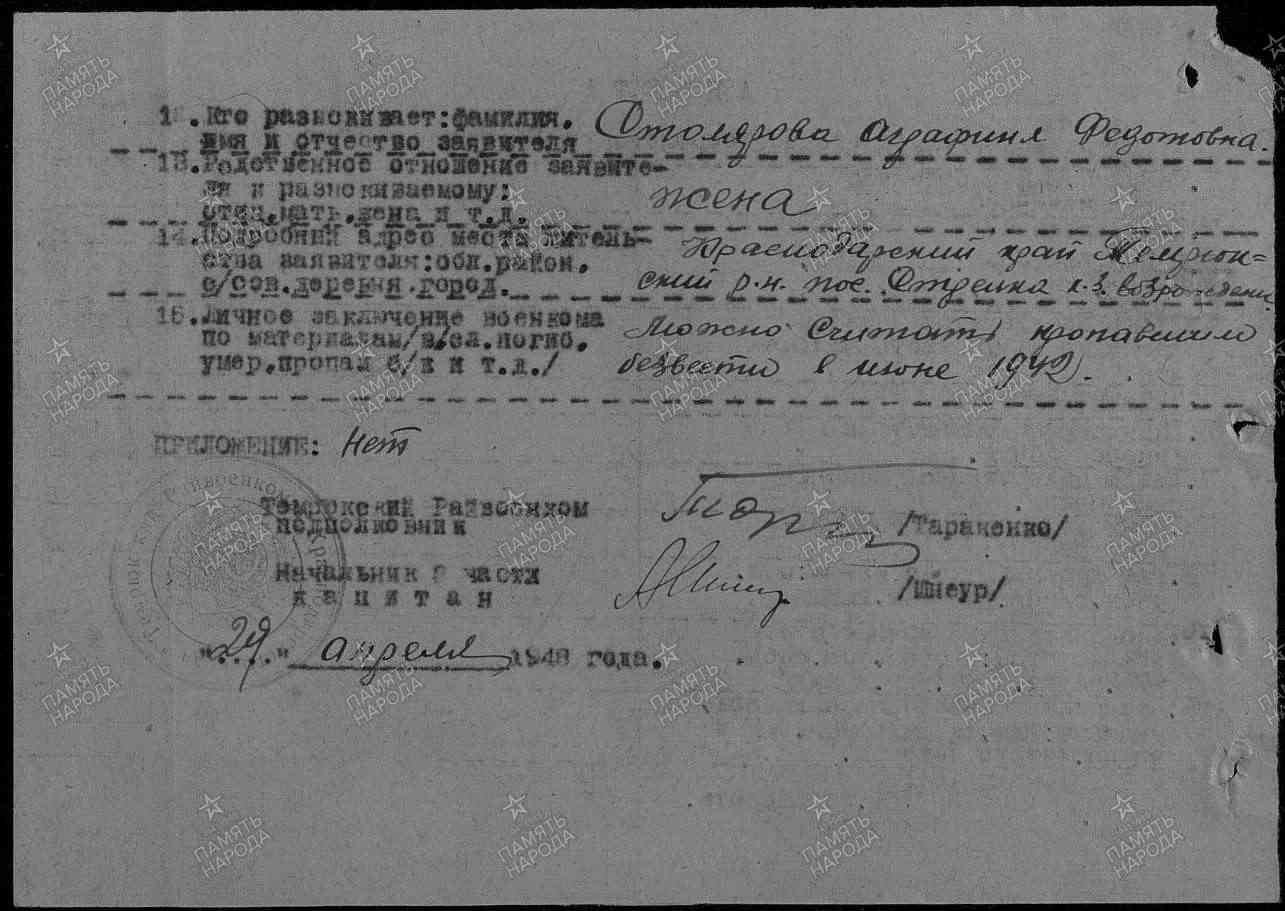 12.Кто разыскивает:фамилия. Столярова Аграфина Федотовна.
имя и отчество заявителя
13.Родственное отношение заявите-
ля к разыскиваемому: жена
отец,мать,жена и т.д.
14.Подробный адрес места житель- Краснодарский край Темрюк-
ства заявителя:обл.район. ский р-н. пос. Отделка к.з. возрождение
с/сов.деревня.город.
15.Личное заключение военкома Можно считать пропавшим
по материалам/в/сл.погиб. безвести в июне 1942.
умер,пропал б/в и т.д./
ПРИЛОЖЕНИЕ: Нет
Темрюкский Райвоенком
подполковник /Тараненко/
Начальник 2 части
капитан /Шнеур/
"29" апреля 1948 года.
ПАМЯТЬ
НАРОДА